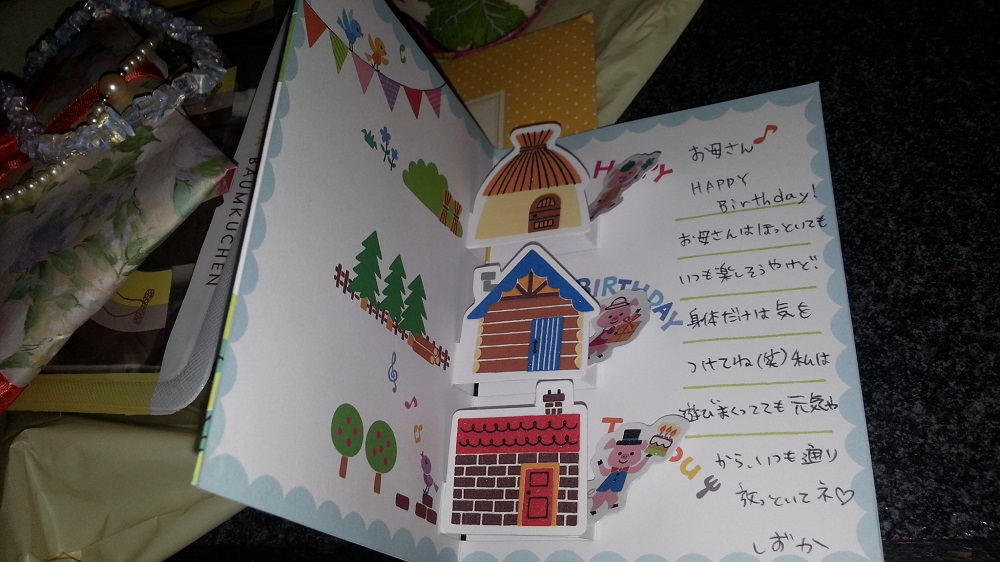 BAUMKUCHEN
HAPPY
BIRTHDAY
お母さん♪
HAPPY
Birthday!
お母さんはほっといても
いつも楽しそうやけど、
身体だけは気を
つけてね(笑)私は
遊びまくってても元気や
から、いつも通り
放っといてネ♡
しずか